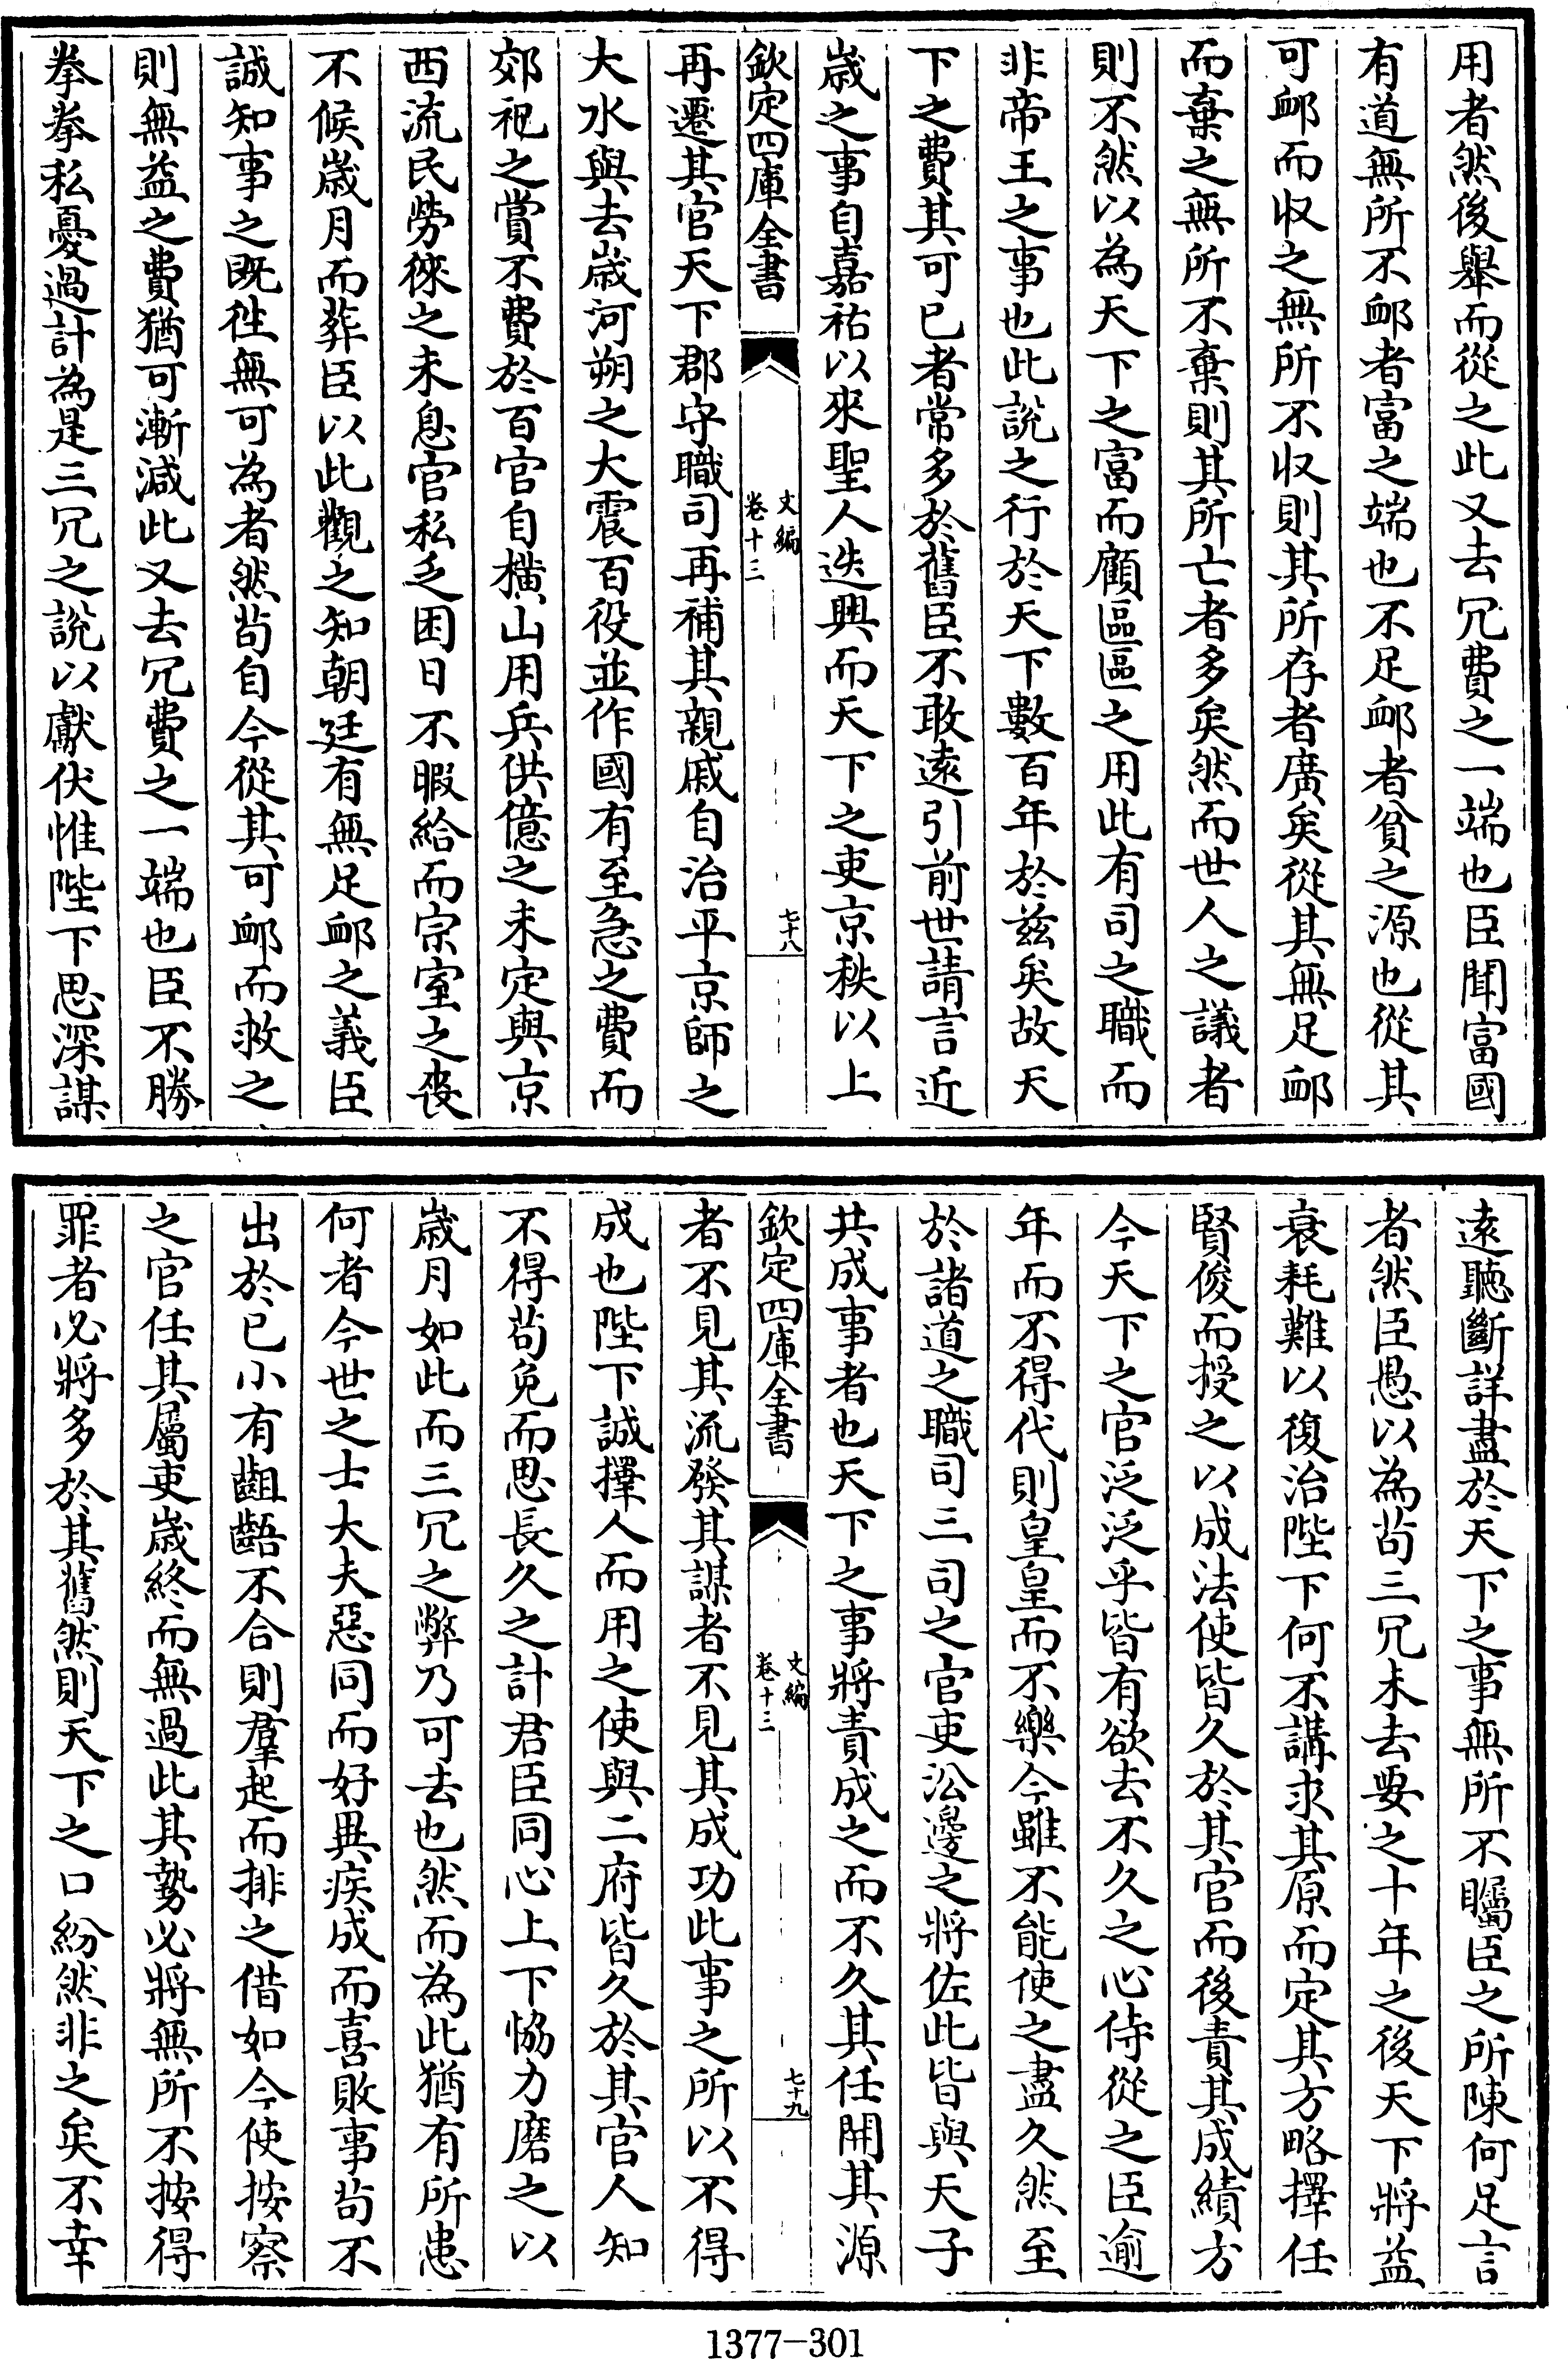 用者然後舉而從之此又去冗費之一端也臣聞富國
有道無所不䘏者富之端也不足䘏者貧之源也從其
可䘏而収之無所不収則其所存者廣矣從其無足䘏
而棄之無所不棄則其所亡者多矣然而世人之議者
則不然以為天下之富而顧區區之用此有司之職而
非帝王之事也此說之行於天下數百年於兹矣故天
下之費其可已者常多於舊臣不敢逺引前世請言近
歲之事自嘉祐以來聖人迭興而天下之吏京秩以上
欽定四庫全書
文編
卷十三
七十八
再遷其官天下郡守職司再補其親戚自治平京師之
大水與去歲河朔之大震百役並作國有至急之費而
郊祀之賞不費於百官自橫山用兵供億之未定與京
西流民勞徠之未息官私乏困日不暇給而宗室之喪
不候歲月而葬臣以此觀之知朝廷有無足䘏之義臣
誠知事之既徃無可為者然苟自今從其可䘏而救之
則無益之費猶可漸減此又去冗費之一端也臣不勝
拳拳私憂過計為是三冗之說以獻伏惟陛下思深謀
逺聽斷詳盡於天下之事無所不矚臣之所陳何足言
者然臣愚以為苟三冗未去要之十年之後天下將益
衰耗難以復治陛下何不講求其原而定其方略擇任
賢俊而授之以成法使皆久於其官而後責其成績方
今天下之官泛泛乎皆有欲去不久之心侍從之臣逾
年而不得代則皇皇而不樂今雖不能使之盡久然至
於諸道之職司三司之官吏㳂邊之將佐此皆與天子
共成事者也天下之事將責成之而不久其任開其源
欽定四庫全書
文編
卷十三
七十九
者不見其流發其謀者不見其成功此事之所以不得
成也陛下誠擇人而用之使與二府皆久於其官人知
不得苟免而思長久之計君臣同心上下恊力磨之以
歲月如此而三冗之弊乃可去也然而為此猶有所患
何者今世之士大夫惡同而好異疾成而喜敗事苟不
出於已小有齟齬不合則羣起而排之借如今使按察
之官任其屬吏歲終而無過此其勢必將無所不按得
罪者必將多於其舊然則天下之口紛然非之矣不幸
1377-301